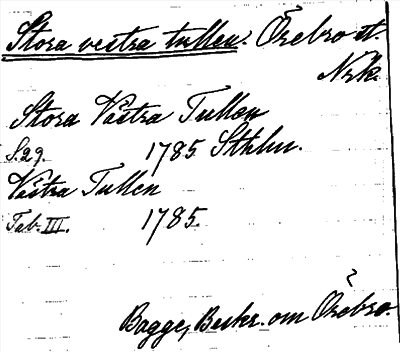 Stora vestra tullen. Örebro st.
Nrk.
Stora Västra Tullen
S.29. 1785. Sthlm.
Västra Tullen
Tab. III. 1785.
Bagge, Beskr. om Örebro.